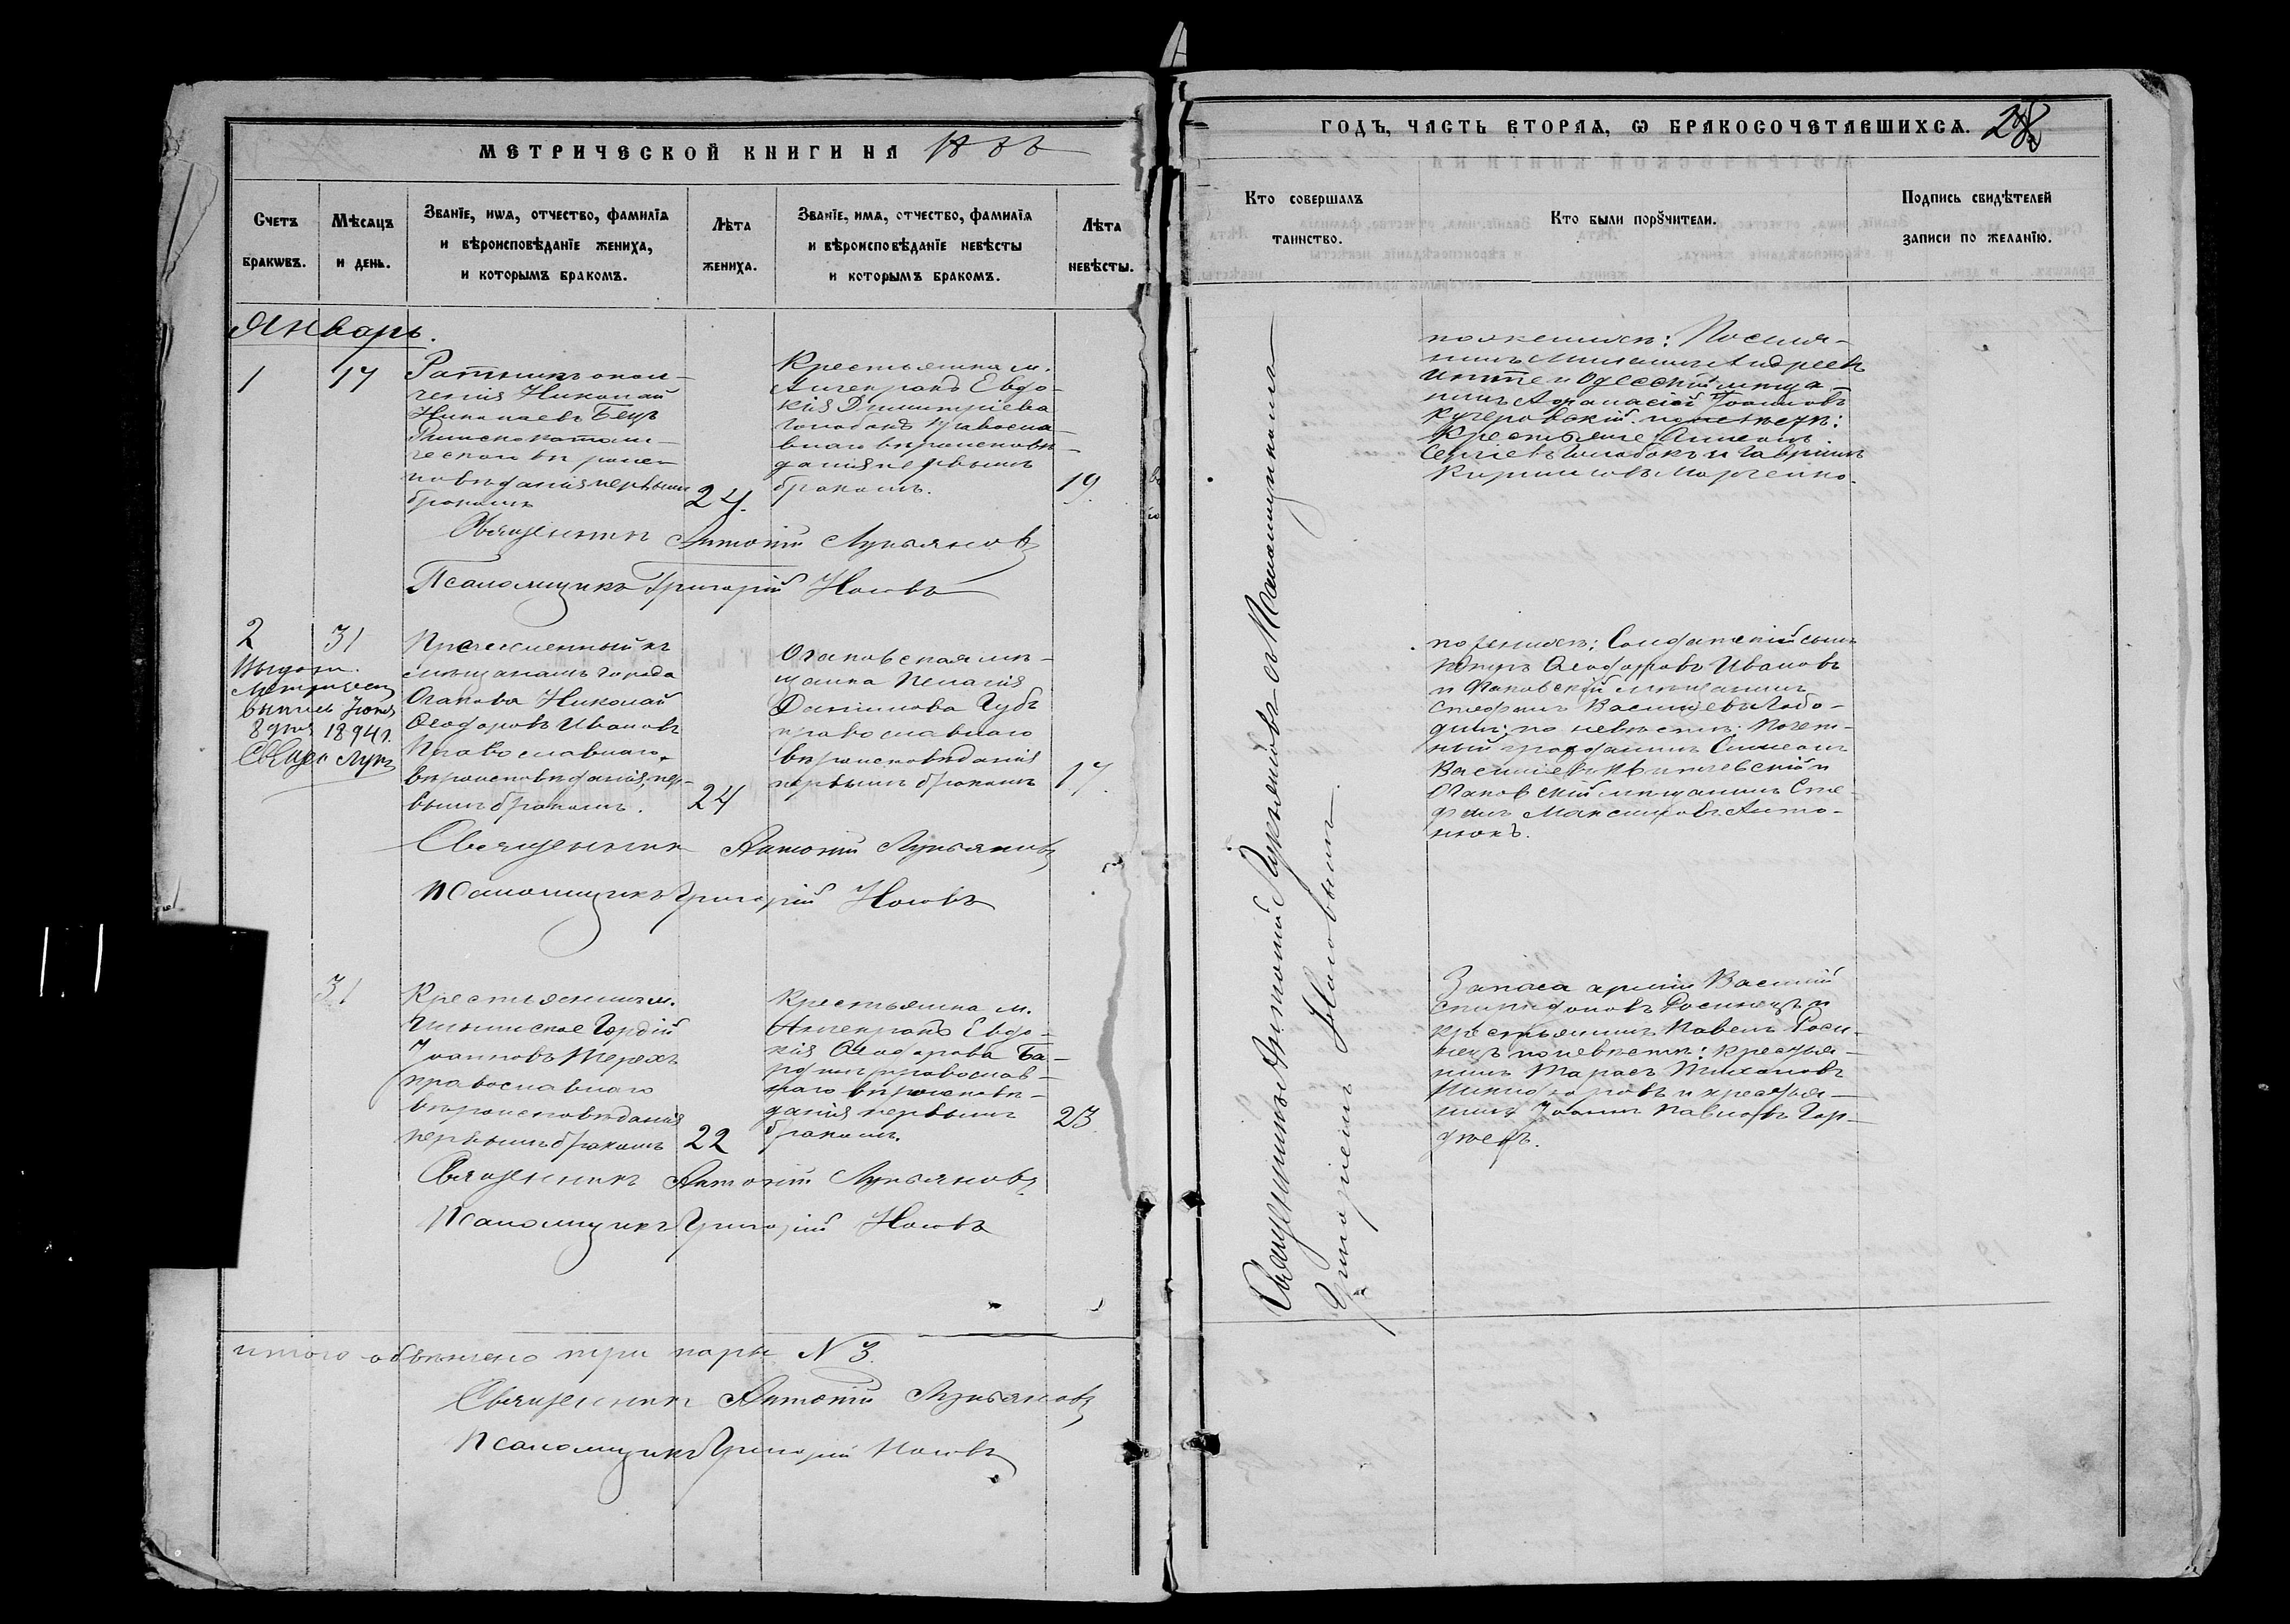 МЕТРИЧЕСКОЙ КНИГИ НА 1888
Счетъ браковъ.
Мѣсяцъ и день.
Званїе, имя, отчество, фамилїя
и вѣроисповѣданїе жениха,
и которымъ бракомъ.
Лѣта
жениха.
Званїе, имя, отчество, фамилїя
и вѣроисповѣданїе невѣсты
и которымъ бракомъ.
Лѣта
невѣсты.
Январь.
1
17
Ратникъ опол-
ченія Николай
Николаевъ Бецъ
Римско католи-
ческаго вѣроис-
повѣданія первымъ
бракомъ
24.
Крестьянка м.
Евдо-
кія Димитріева
Голобокъ Правосла-
внаго вѣроисповѣ-
данія первымъ
бракомъ.
19.
Священникъ Антоній Лукьяновъ
Псаломщикъ Григорій Носовъ
2
31
Выдан.
Метрическ
выпись Іюня
8 дня 1894 г.
Свящ. Лук
Причисленный къ
мѣщанамъ города
Очакова Николай
Ѳеодоровъ Ивановъ
Православнаго
вѣроисповѣданія, пер-
вымъ бракомъ.
24
Очаковская мѣ-
щанка Пелагія
Даніилова Губъ
православнаго
вѣроисповѣданія
первымъ бракомъ
17.
Священникъ Антоній Лукьяновъ
Псаломщикъ Григорій Носовъ
31
Крестьянинъ м.
Гордій
Іоанновъ Терехъ
православнаго
вѣроисповѣданія
первымъ бракомъ
22
Крестьянка м.
Евдо-
кія Ѳеодорова Ба-
православ-
наго вѣроисповѣ-
данія первымъ
бракомъ.
23.
Священникъ Антоній Лукьяновъ
Псаломщикъ Григорій Носовъ
итого обвѣнчано три пары N 3.
Священникъ Антоній Лукьяновъ
Псаломщикъ Григорій Носовъ
ГОДЪ, ЧАСТЬ ВТОРАЯ, Ѡ БРАКОСОЧЕТАВШИХСЯ. 28
Кто совершалъ
таинство.
Кто были порꙋчители.
Подпись свидѣтелей
записи по желанїю.
Священникъ Антоній Лукьяновъ с Псаломщикомъ
Григоріемъ Носовымъ
по женихѣ: Поселя-
нинъ Андреевъ
и Одесскій мѣща-
нинъ Аѳанасій Іоанновъ
Кучеровскій. по невѣстѣ:
Крестьяне: Симеонъ
Сергіевъ Голобокъ и Гавріилъ
Кирилловъ Марченко.
по женихѣ: Солдатскій сынъ
Ѳеодоровъ Ивановъ
и Очаковскій мѣщанинъ
Стефанъ Васильевъ
по невѣстѣ: Почет-
ный гражданинъ Симеонъ
Васильевъ
Очаковскій мѣщанинъ Сте-
фанъ Максимовъ Анто-
нюкъ.
Запаса арміи Василій
Спиридоновъ и
крестьянинъ Павелъ
по невѣстѣ: крестья-
нинъ Тарасъ
Никифоровъ и крестья-
нинъ Іоаннъ Павловъ Гор-